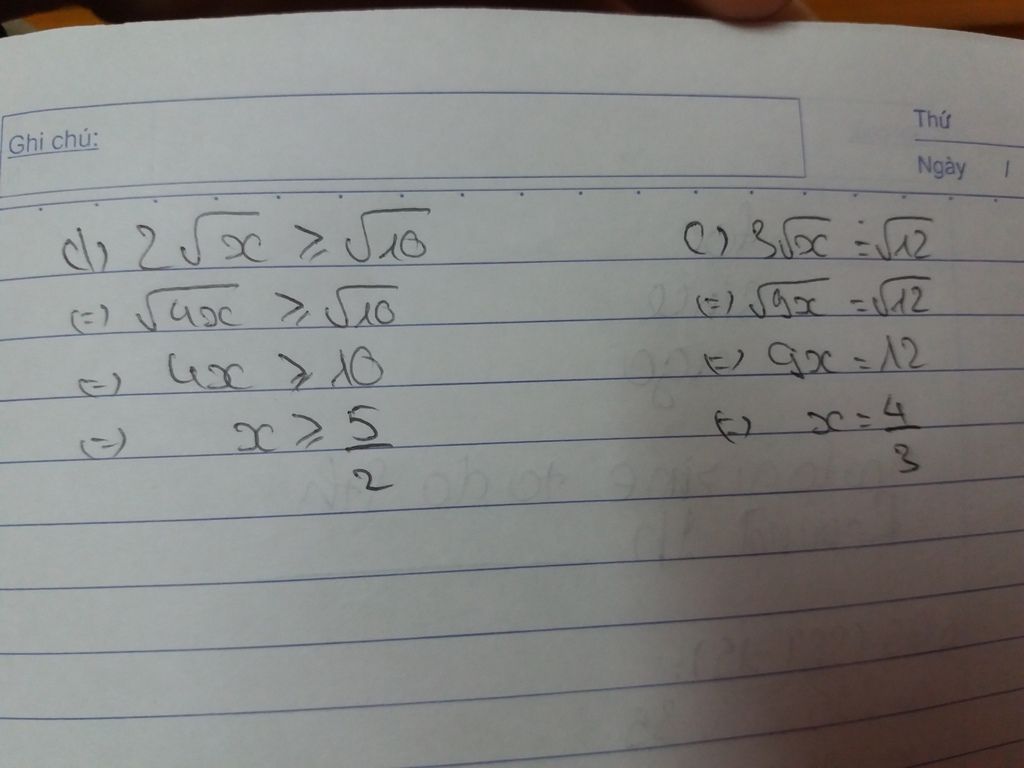 Ghi chú:
Thứ
Ngày /
d) 2√x ≥ √10
(=) √4x ≥ √10
(=) 4x ≥ 10
(=) x ≥ 5/2
c) 3√x = √12
(=) √9x = √12
(=) 9x = 12
(=) x = 4/3